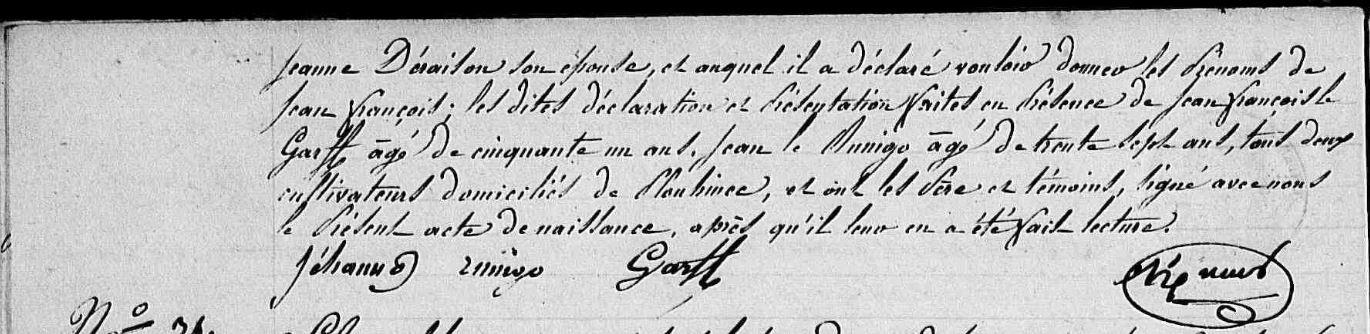 jeanne Déraison son épouse, et auquel il a déclaré vouloir donner les Prénoms de
jean françois; les dites déclaration et Présentation faites en Présence de jean françois le
Garff âgé de cinquante un ans, jean le Runigo âgé de trente sept ans, tous deux
cultivateurs domiciliés de Plouhinec, et ont les Père et témoins, signé avec nous
le Présent acte de naissance, après qu'il leur en a été fait lecture.
jéhanno Runigo Garff
N°